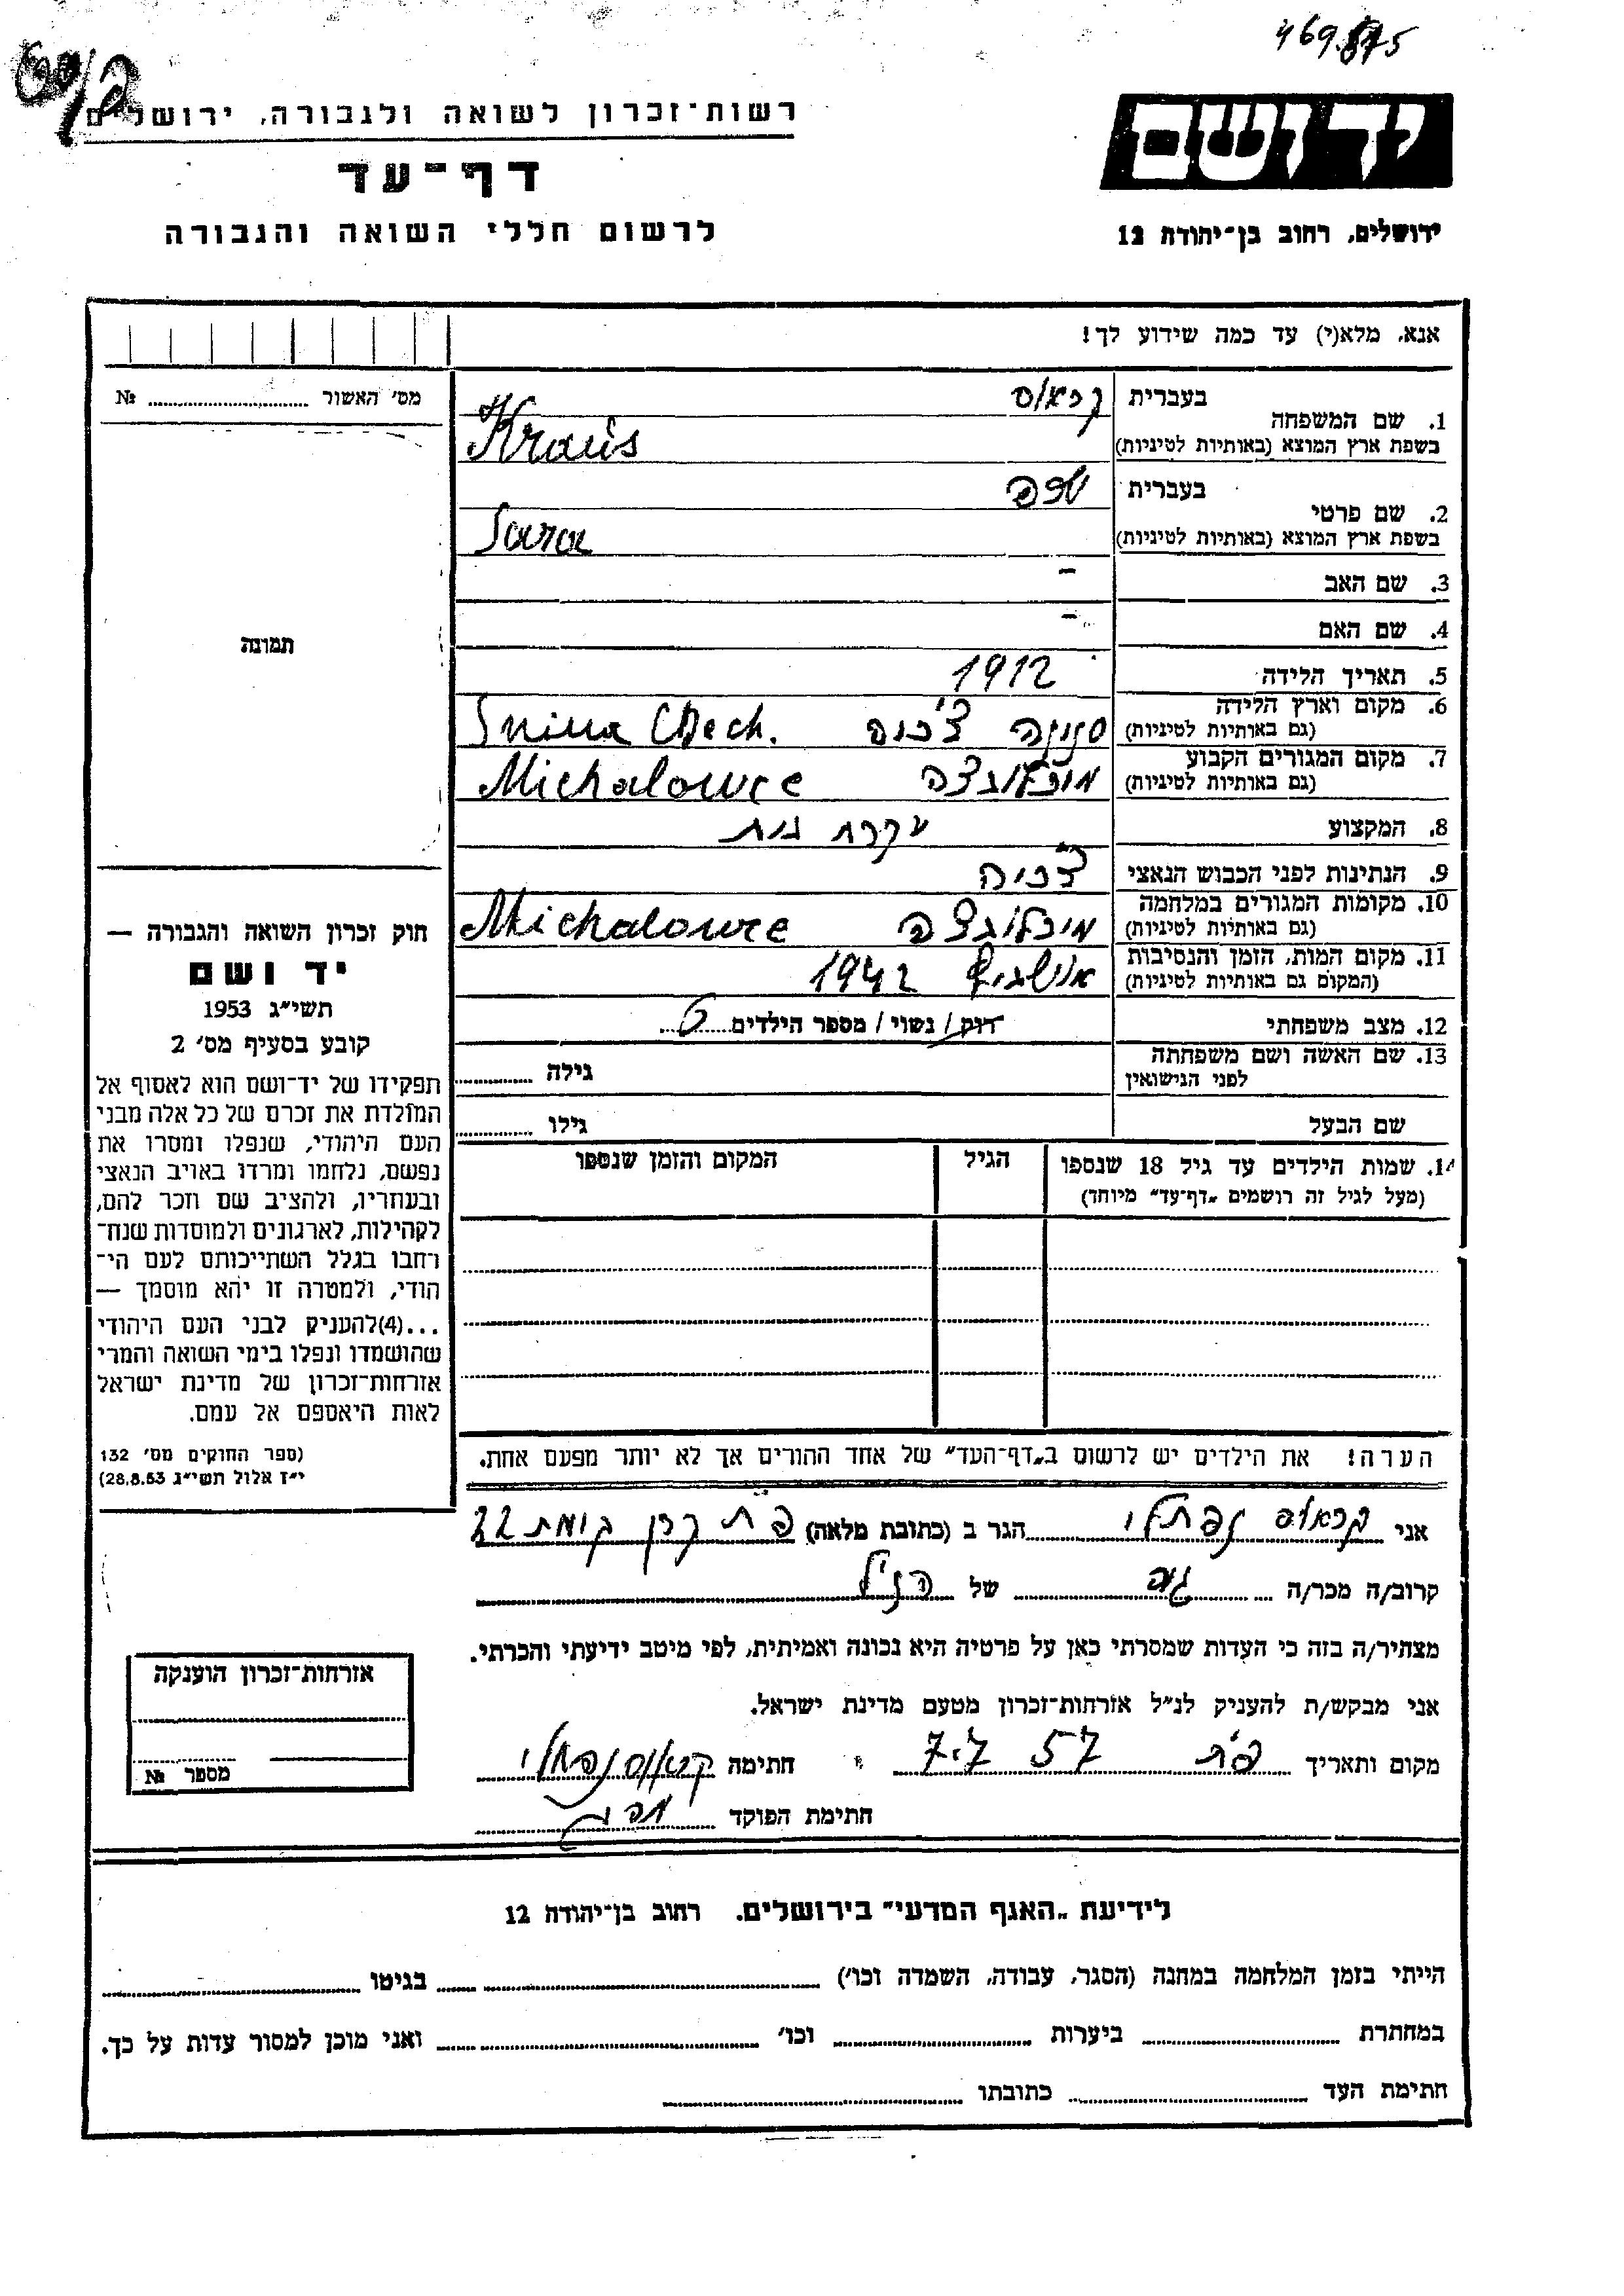 469875
רשות־זכרון לשואה ולגבורה, ירושלים
דף־עד
לרשום חללי השואה והגבורה
יד ושם
ירושלים, רחוב בן־יהודה 12
אנא, מלא(י) עד כמה שידוע לך!
1. שם המשפחה
בעברית קראוס
בשפת ארץ המוצא (באותיות לטיניות) Kraus
2. שם פרטי
בעברית שרה
בשפת ארץ המוצא (באותיות לטיניות) Sara
3. שם האב –
4. שם האם –
5. תאריך הלידה 1912
6. מקום וארץ הלידה
(גם באותיות לטיניות) סנינה צ'כוס Snina Chech.
7. מקום המגורים הקבוע
(גם באותיות לטיניות) מיכלובצה Michalowce
8. המקצוע עקרת בית
9. הנתינות לפני הכבוש הנאצי צ'כיה
10. מקומות המגורים במלחמה
(גם באותיות לטיניות) מיכלובצה Michalowce
11. מקום המות, הזמן והנסיבות
(המקום גם באותיות לטיניות) אושביץ 1942
12. מצב משפחתי רוק / נשוי / מספר הילדים 6
13. שם האשה ושם משפחתה
לפני הנישואין גילה
שם הבעל גילו
14. שמות הילדים עד גיל 18 שנספו הגיל המקום והזמן שנספו
(מעל לגיל זה רושמים „דף־עד" מיוחד)
הערה! את הילדים יש לרשום ב„דף־העד" של אחד ההורים אך לא יותר מפעם אחת.
מס' האשור №
תמונה
חוק זכרון השואה והגבורה —
יד ושם
תשי"ג 1953
קובע בסעיף מס' 2
תפקידו של יד־ושם הוא לאסוף אל
המולדת את זכרם של כל אלה מבני
העם היהודי, שנפלו ומסרו את
נפשם, נלחמו ומרדו באויב הנאצי
ובעוזריו, ולהציב שם וזכר להם,
לקהילות, לארגונים ולמוסדות שנח־
רבו בגלל השתייכותם לעם הי־
הודי, ולמטרה זו יהא מוסמך —
...(4)להעניק לבני העם היהודי
שהושמדו ונפלו בימי השואה והמרי
אזרחות־זכרון של מדינת ישראל
לאות היאספם אל עמם.
(ספר החוקים מס' 132
י"ז אלול תשי"ג 28.8.53)
אני קראוס נפתלי הגר ב (כתובת מלאה) פ"ת קרן קימת 22
קרוב/ה מכר/ה גיס של הנ"ל
מצהיר/ה בזה כי העדות שמסרתי כאן על פרטיה היא נכונה ואמיתית, לפי מיטב ידיעתי והכרתי.
אני מבקש/ת להעניק לנ"ל אזרחות־זכרון מטעם מדינת ישראל.
מקום ותאריך פ"ת 7.7 57 חתימה קראוס נפתלי
חתימת הפוקד
אזרחות־זכרון הוענקה
מספר №
לידיעת „האגף המדעי" בירושלים. רחוב בן־יהודה 12
הייתי בזמן המלחמה במחנה (הסגר, עבודה, השמדה וכו') בגיטו
במחתרת ביערות וכו' ואני מוכן למסור עדות על כך.
חתימת העד כתובתו